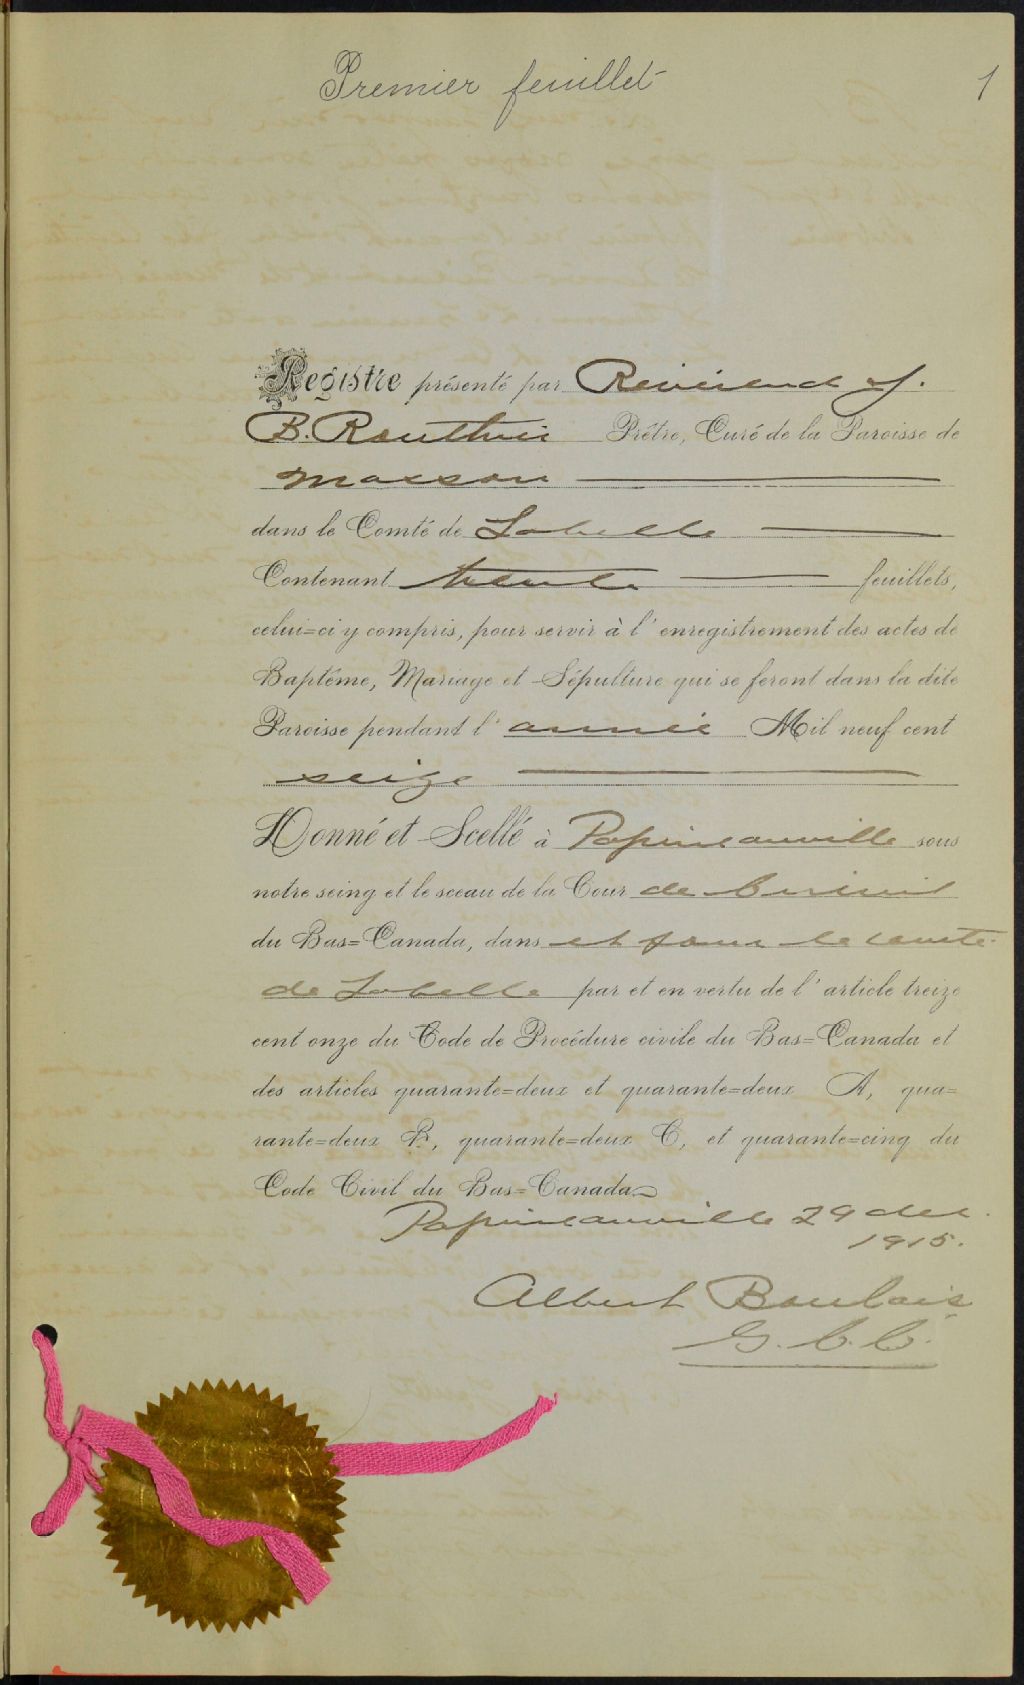 Premier feuillet
1
Registre présenté par Révérend J.
B. Routhier Prêtre, Curé de la Paroisse de
Masson
dans le Comté de Labelle
Contenant trente feuillets,
celui=ci y compris, pour servir à l'enregistrement des actes de
Baptême, Mariage et Sépulture qui se feront dans la dite
Paroisse pendant l'année Mil neuf cent
seize
Donné et Scellé à Papineauville sous
notre seing et le sceau de la Cour de Circuit
du Bas=Canada, dans et pour le comté
de Labelle par et en vertu de l'article treize
cent onze du Code de Procédure civile du Bas=Canada et
des articles quarante=deux et quarante=deux A, qua=
rante=deux B, quarante=deux C, et quarante=cinq du
Code Civil du Bas=Canada.
Papineauville 29 dec.
1915.
Albert Boulais
G. C. C.